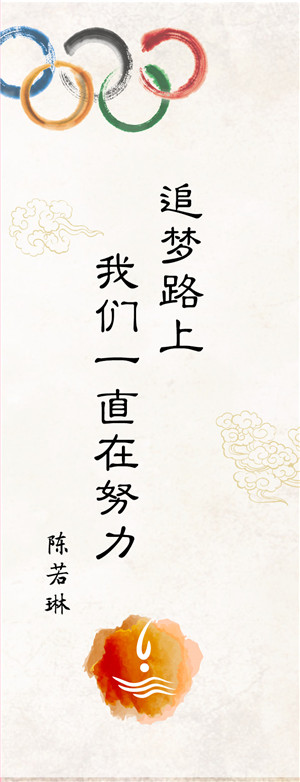 追梦路上
我们一直在努力
陈若琳